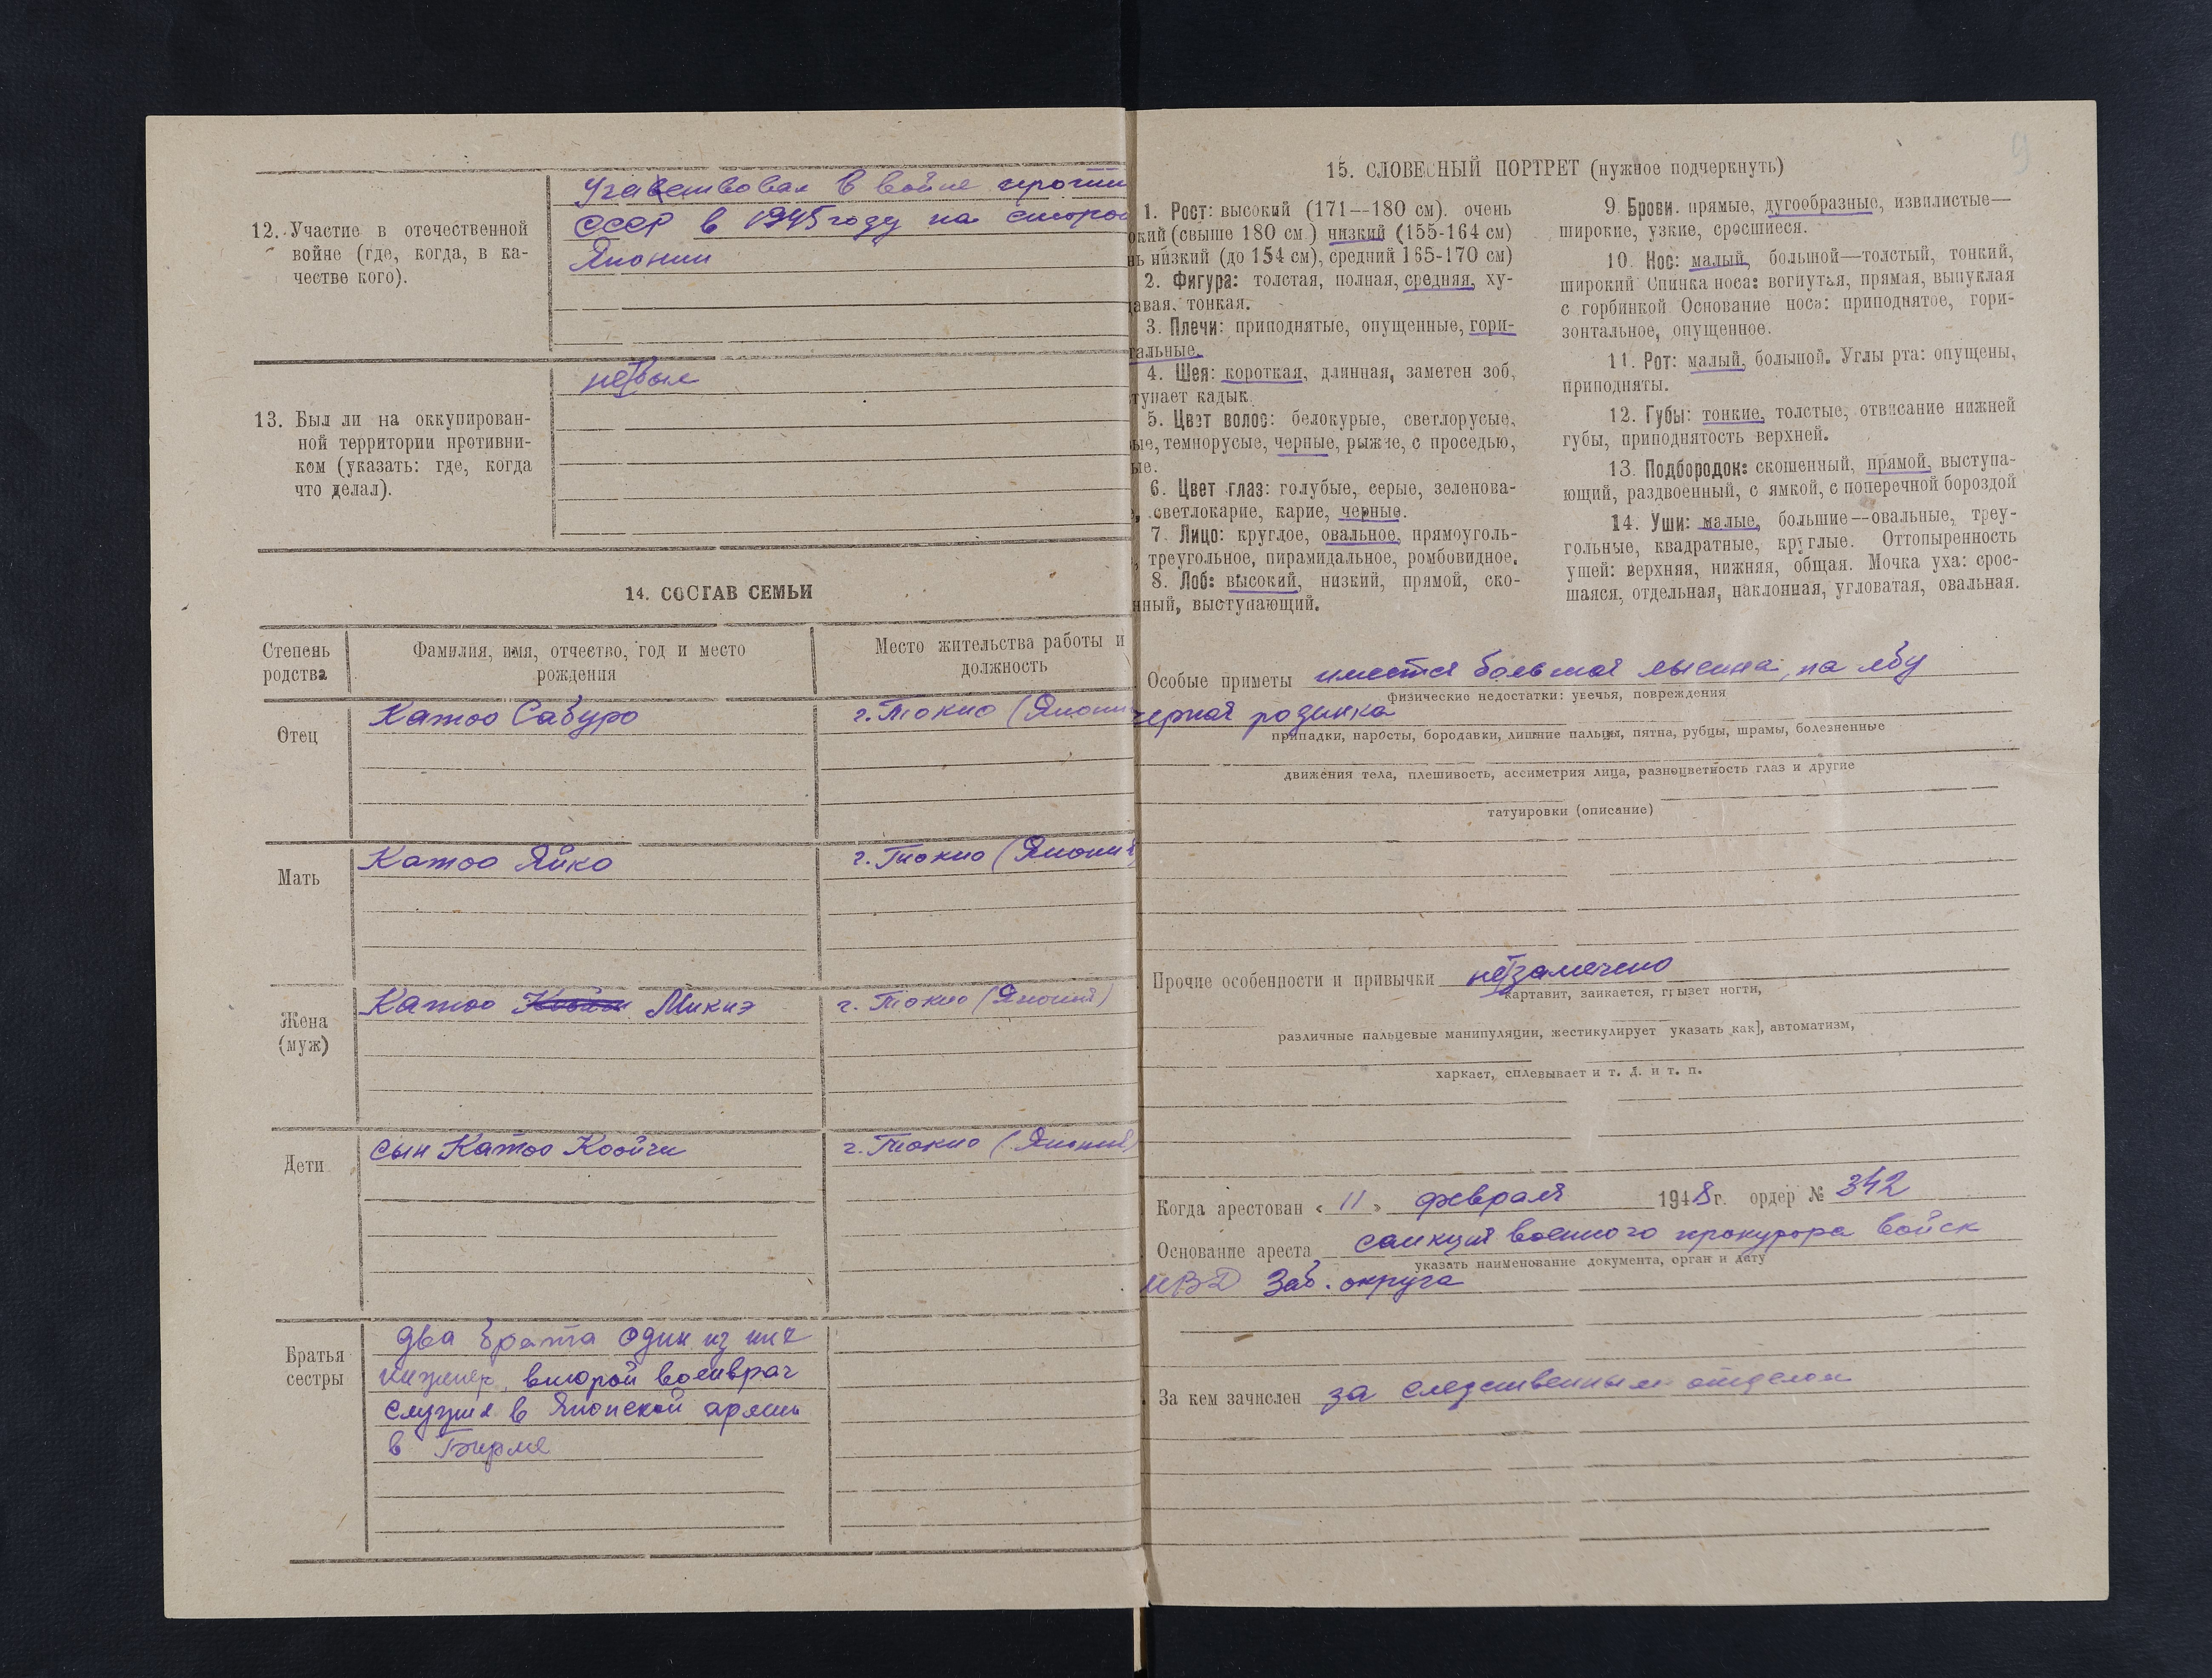 12. Участие в отечественной
войне (где, когда, в ка-
честве кого).
Участвовал в войне против
СССР в 1945 году на сторо
Японии
13. Был ли на оккупирован-
ной территории противни-
ком (указать: где, когда
что делал).
не был
14. СОСТАВ СЕМЬИ
Степень
родства
Фамилия, имя, отчество, год и место
рождения
Место жительства работы и
должность
Отец
Катоо Сабуро
г. Токио (Япони
Мать
Катоо Яйко
г. Токио (Япония
Жена
(муж)
Катоо Микиэ
г. Токио (Япония)
Дети
сын Катоо Коойчи
г. Токио (Япония)
Братья
сестры
два брата один из них
инженер, второй военврач
служил в Японской армии
в Бирме
9
15. СЛОВЕСНЫЙ ПОРТРЕТ (нужное подчеркнуть)
1. Рост: высокий (171—180 см). очень
окий (свыше 180 см.) низкий (155-164 см)
нь низкий (до 154 см), средний 165-170 см)
2. Фигура: толстая, полная, средняя, ху-
давая, тонкая.
3. Плечи: приподнятые, опущенные, гори-
тальные.
4. Шея: короткая, длинная, заметен зоб,
тупает кадык.
5. Цвет волос: белокурые, светлорусые,
ые, темнорусые, черные, рыжие, с проседью,
ые.
6. Цвет глаз: голубые, серые, зеленова-
, светлокарие, карие, черные.
7. Лицо: круглое, овальное, прямоуголь-
, треугольное, пирамидальное, ромбовидное.
8. Лоб: высокий, низкий, прямой, ско-
нный, выступающий.
9. Брови. прямые, дугообразные, извилистые—
широкие, узкие, сросшиеся.
10. Нос: малый, большой—толстый, тонкий,
широкий Спинка носа: вогнутая, прямая, выпуклая
с горбинкой Основание носа: приподнятое, гори-
зонтальное, опущенное.
11. Рот: малый, большой. Углы рта: опущены,
приподняты.
12. Губы: тонкие, толстые, отвисание нижней
губы, приподнятость верхней.
13. Подбородок: скошенный, прямой, выступа-
ющий, раздвоенный, с ямкой, с поперечной бороздой
14. Уши: малые, большие—овальные, треу-
гольные, квадратные, круглые. Оттопыренность
ушей: верхняя, нижняя, общая. Мочка уха: срос-
шаяся, отдельная, наклонная, угловатая, овальная.
Особые приметы имеется большая лысина, на лбу
физические недостатки: увечья, повреждения
черная родинка
припадки, наросты, бородавки, лишние пальцы, пятна, рубцы, шрамы, болезненные
движения тела, плешивость, ассиметрия лица, разноцветность глаз и другие
татуировки (описание)
Прочие особенности и привычки не замечено
картавит, заикается, грызет ногти,
различные пальцевые манипуляции, жестикулирует указать как], автоматизм,
харкает, сплевывает и т. д. и т. п.
Когда арестован « 11 » февраля 1948 г. ордер № 342
Основание ареста санкция военного прокурора войск
указать наименование документа, орган и дату
МВД Заб. округа
За кем зачислен за следственным отделом